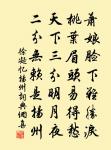 萧娘脸下难胜泪
桃叶眉头易得愁
天下三分明月夜
二分无赖是扬州
徐凝忆扬州词典网集